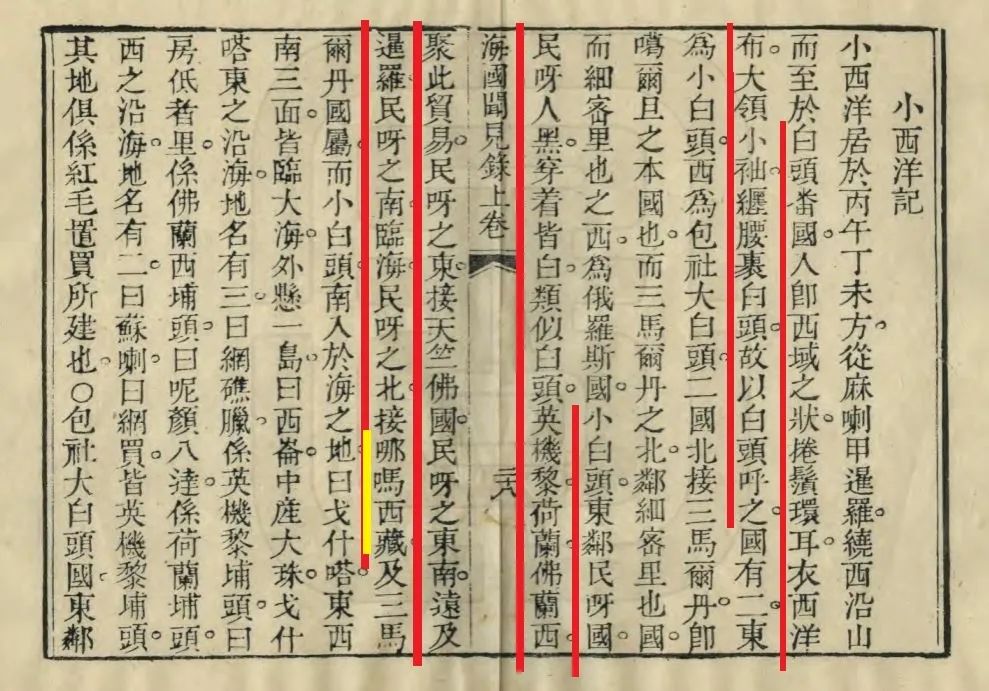 小西洋記
小西洋居於丙午丁未方。從麻喇甲暹羅。繞西沿山
而至於白頭番國。人卽西域之狀。捲鬚環耳。衣西洋
布。大領小袖。纒腰裹白頭。故以白頭呼之。國有二。東
為小白頭。西為包社大白頭。二國北接三馬爾丹。卽
噶爾旦之本國也。而三馬爾丹之北。鄰細密里也國。
而細密里也之西。為俄羅斯國。小白頭東鄰民呀國。
民呀人黑。穿着皆白。類似白頭。英機黎。荷蘭。佛蘭西。
海國聞見錄上卷 二八
聚此貿易。民呀之東。接天竺佛國。民呀之東南。遠及
暹羅。民呀之南臨海。民呀之北。接哪嗎西藏。及三馬
爾丹國屬。而小白頭南入於海之地。曰戈什嗒。東西
南三面皆臨大海。外懸一島。曰西崙。中產大珠。戈什
嗒東之沿海。地名有三。曰網礁臘。係英機黎埔頭。曰
房低者里。係佛蘭西埔頭。曰呢顏八達。係荷蘭埔頭。
西之沿海。地名有二。曰蘇喇。曰網買。皆英機黎埔頭。
其地俱係紅毛置買所建也。○包社大白頭國。東鄰